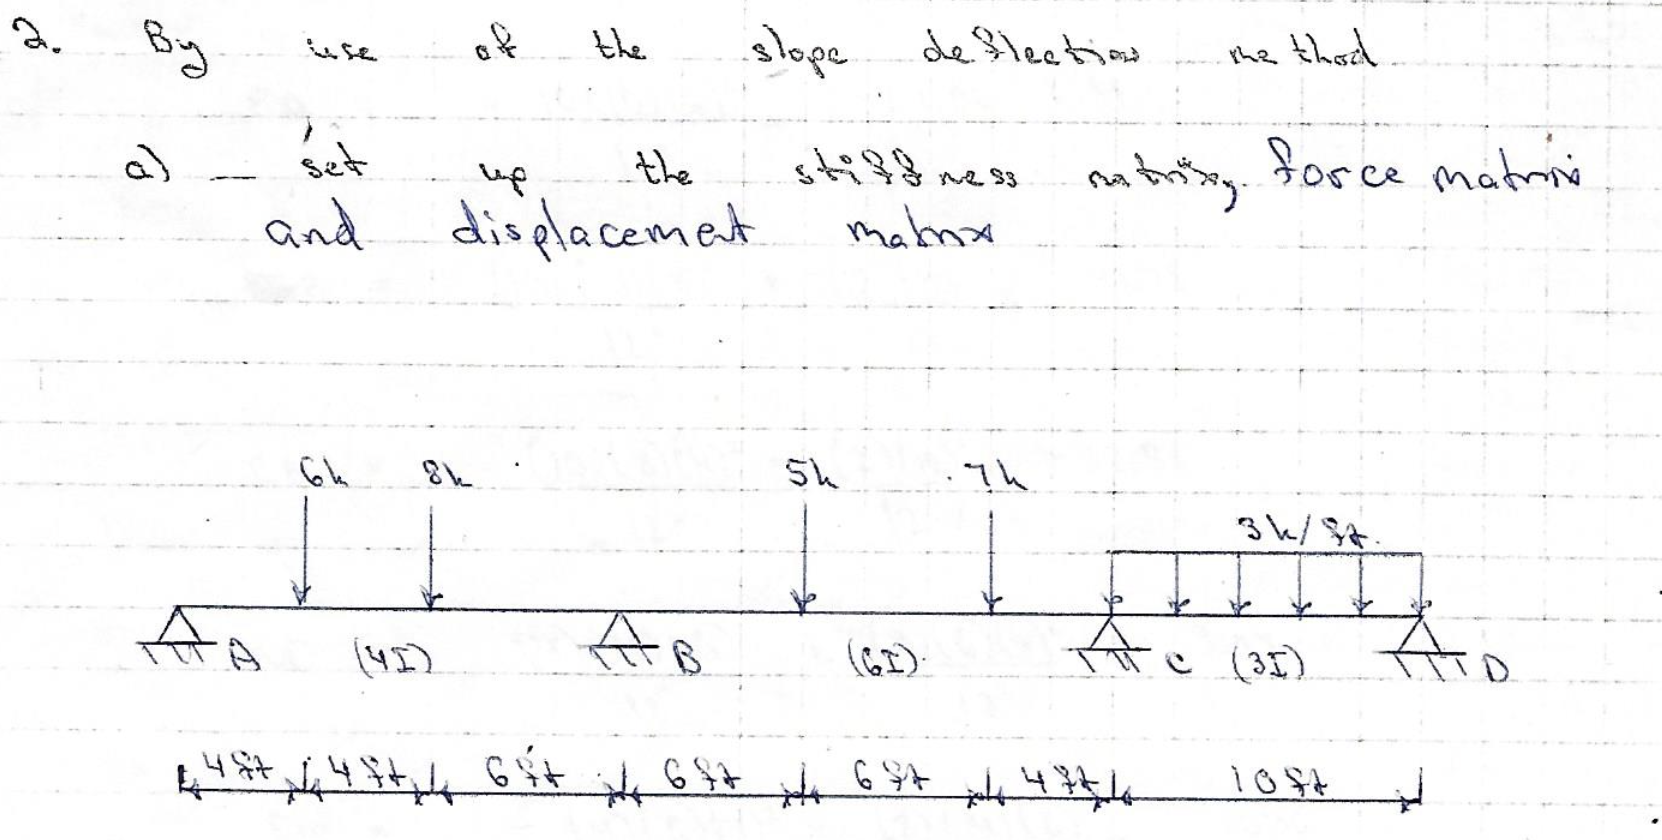 2. By use of the slope deflection method
a) — set up the stiffness matrix, force matrix
and displacement matrix
6k 8k 5k 7k
3k/ft.
A (4I) B (6I) C (3I) D
4ft 4ft 6ft 6ft 6ft 4ft 10ft